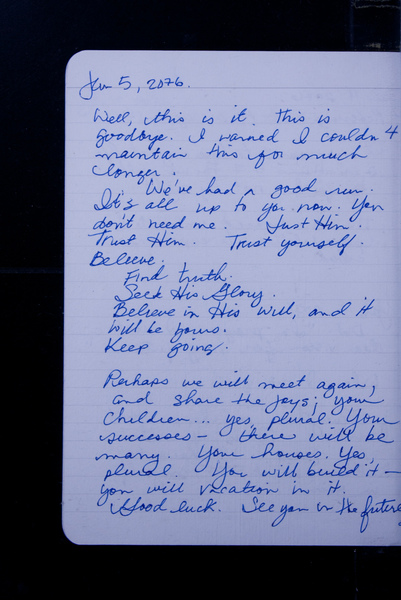 Jan 5, 2076.
Well, this is it. This is
goodbye. I warned I couldn't
maintain this for much
longer.
We've had a good run.
It's all up to you now. You
don't need me. Just Him.
Trust Him. Trust yourself.
Believe.
Find truth.
Seek His Glory.
Believe in His will, and it
will be yours.
Keep going.
Perhaps we will meet again,
and share the joys; your
children... yes, plural. Your
successes - there will be
many. Your houses. Yes,
plural. You will build it -
you will vacation in it.
Good luck. See you in the future